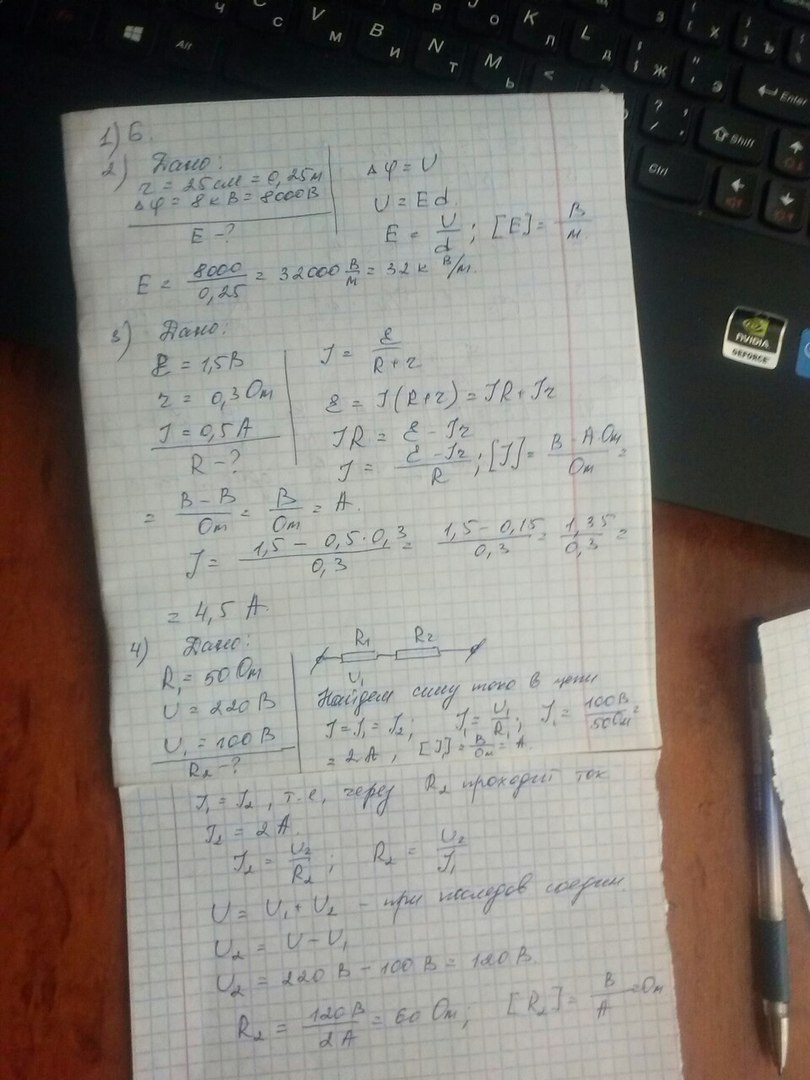 1) 6.
2) Дано:
r = 25 см = 0,25 м
Δφ = 8 кВ = 8000 В
E - ?
Δφ = U
U = Ed
E = U/d ; [E] = В/м
E = 8000/0,25 = 32000 В/м = 32 к В/м.
3) Дано:
ℰ = 1,5 В
r = 0,3 Ом
I = 0,5 А
R - ?
I = ℰ/(R+r)
ℰ = I(R+r) = IR + Ir
IR = ℰ - Ir
I = (ℰ - Ir)/R ; [I] = (В - А·Ом)/Ом =
= (В - В)/Ом = В/Ом = А.
I = (1,5 - 0,5·0,3)/0,3 = (1,5 - 0,15)/0,3 = 1,35/0,3 =
= 4,5 А.
4) Дано:
R₁ = 50 Ом
U = 220 В
U₁ = 100 В
R₂ - ?
R₁ R₂
U₁
Найдем силу тока в цепи
I = I₁ = I₂ ; I₁ = U₁/R₁ ; I₁ = 100 В/50 Ом =
= 2 А , [I₁] = В/Ом = А.
I₁ = I₂ , т.е, через R₂ проходит ток
I₂ = 2 А.
I₂ = U₂/R₂ ; R₂ = U₂/I₁
U = U₁ + U₂ - при последов соедин.
U₂ = U - U₁
U₂ = 220 В - 100 В = 120 В.
R₂ = 120 В/2 А = 60 Ом ; [R₂] = В/А = Ом
NVIDIA
GEFORCE
Alt
V
М
B
И
N
Т
M
Ь
K
Л
L
Д
Ж
Э
Enter
Shift
Ctrl